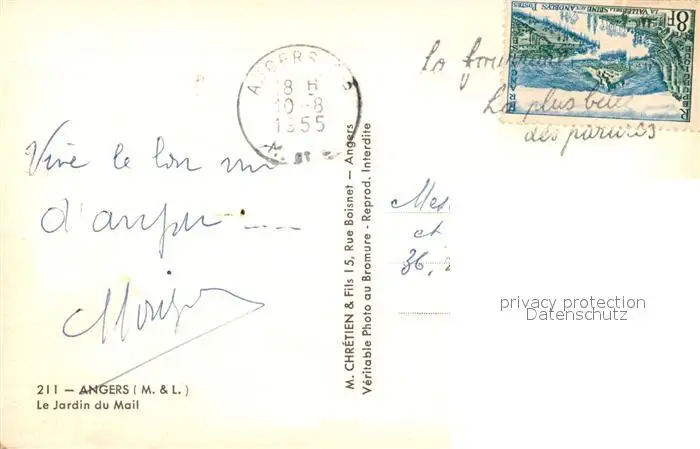 Vive le bon vin
d'anjou
211 — ANGERS (M. & L.)
Le Jardin du Mail
ANGERS
18 H
10-8
1955
M. CHRÉTIEN & Fils 15, Rue Boisnet — Angers
Véritable Photo au Bromure - Reprod. Interdite
La
La plus belle
des parures
8F
LA VALLÉE DE LA SEINE AUX ANDELYS
POSTES
et
36,
privacy protection
Datenschutz